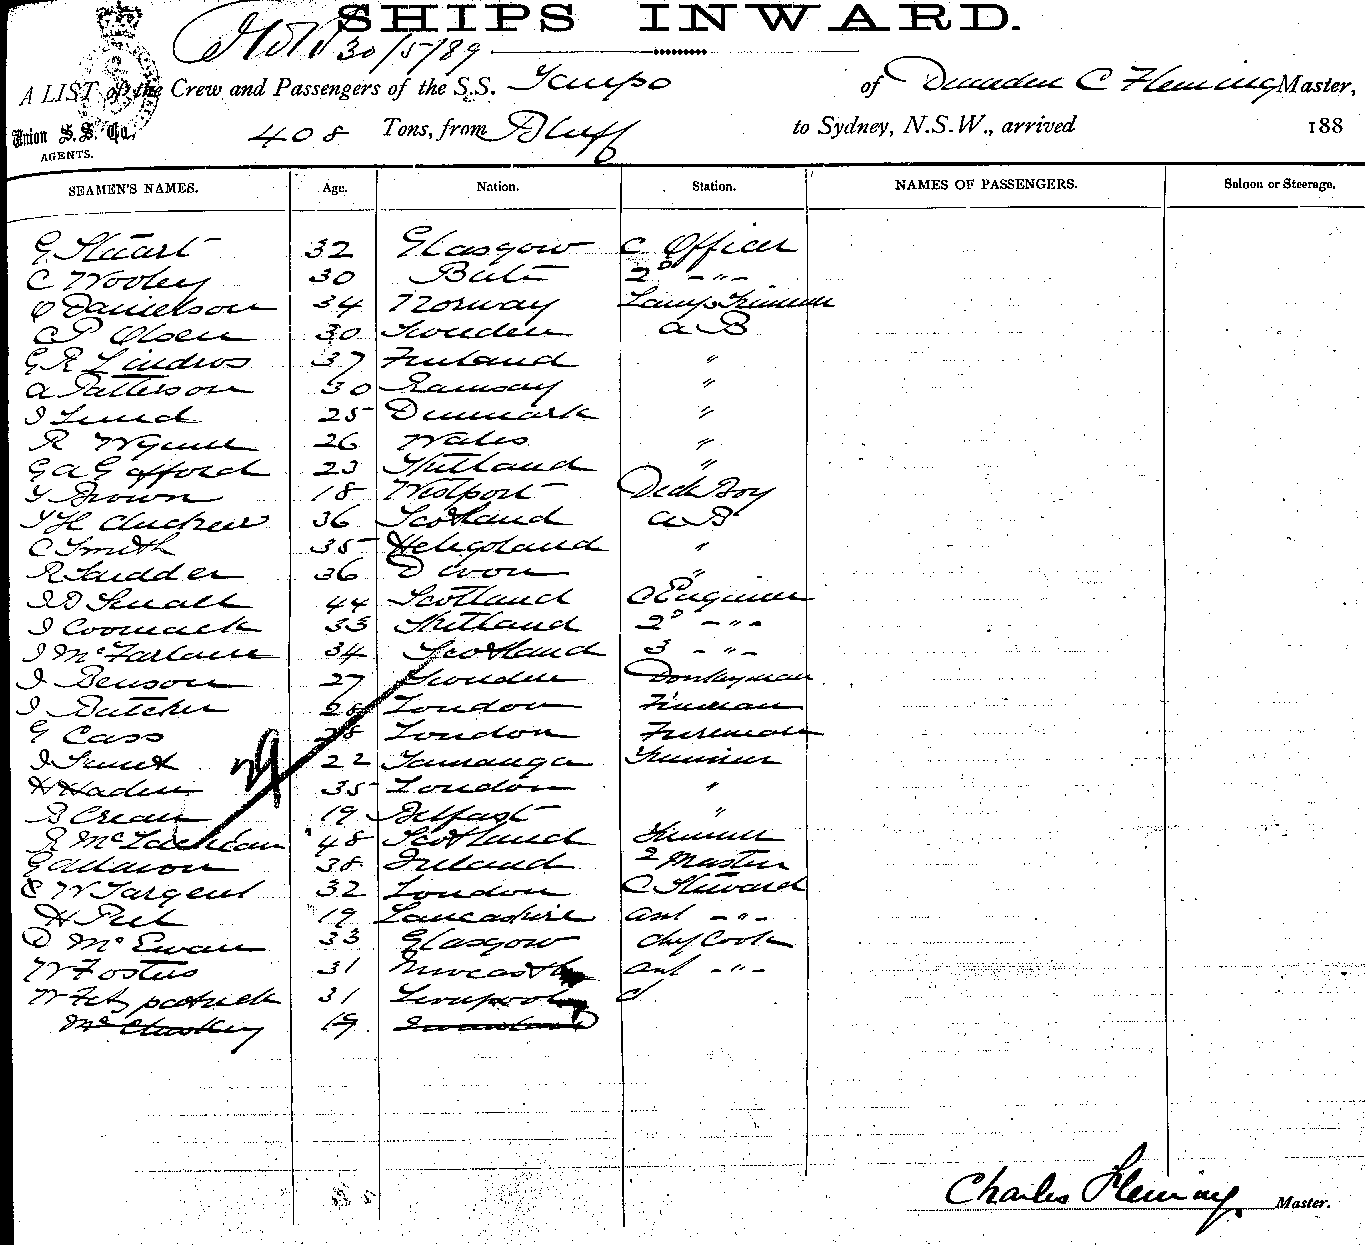 SHIPS INWARD.
30/5/89
A LIST of the Crew and Passengers of the S.S. Taupo of Dunedin C Fleming Master,
Union S.S. Co. 408 Tons, from Bluff to Sydney, N.S.W., arrived 188
AGENTS.
SEAMEN'S NAMES. Age. Nation. Station. NAMES OF PASSENGERS. Saloon or Steerage.
G Stuart 32 Glasgow C Officer
C Wooley 30 Bute 2d - " -
O Danielson 34 Norway Lamp Trimmer
C P Olsen 30 Sweden A B
G R Lindros 37 Finland "
A Patterson 30 Ramsay "
J Lund 25 Denmark "
R Wynne 26 Wales "
G A Gifford 23 Shetland "
T Brown 18 Westport Deck Boy
T H Andrew 36 Scotland A B
C Smith 35 Heligoland "
R Sudder 36 Devon "
J D Small 44 Scotland C Engineer
J Coomack 33 Shetland 2d - " -
J McFarlane 34 Scotland 3 - " -
J Benson 27 Sweden Donkeyman
J Butcher 28 London Fireman
G Cass 28 London Fireman
J Smith 22 Tauranga Trimmer
H Haden 35 London "
B Crean 19 Belfast "
R McLachlan 48 Scotland Trimmer
38 Ireland 2 Master
E W Sargent 32 London C Steward
H Peel 19 Lancashire Asst - " -
D McEwan 33 Glasgow Chef Cook
W Foster 31 Newcastle Asst - " -
W Fitzpatrick 31 Liverpool
McCluskey 19
29
Charles Fleming Master.